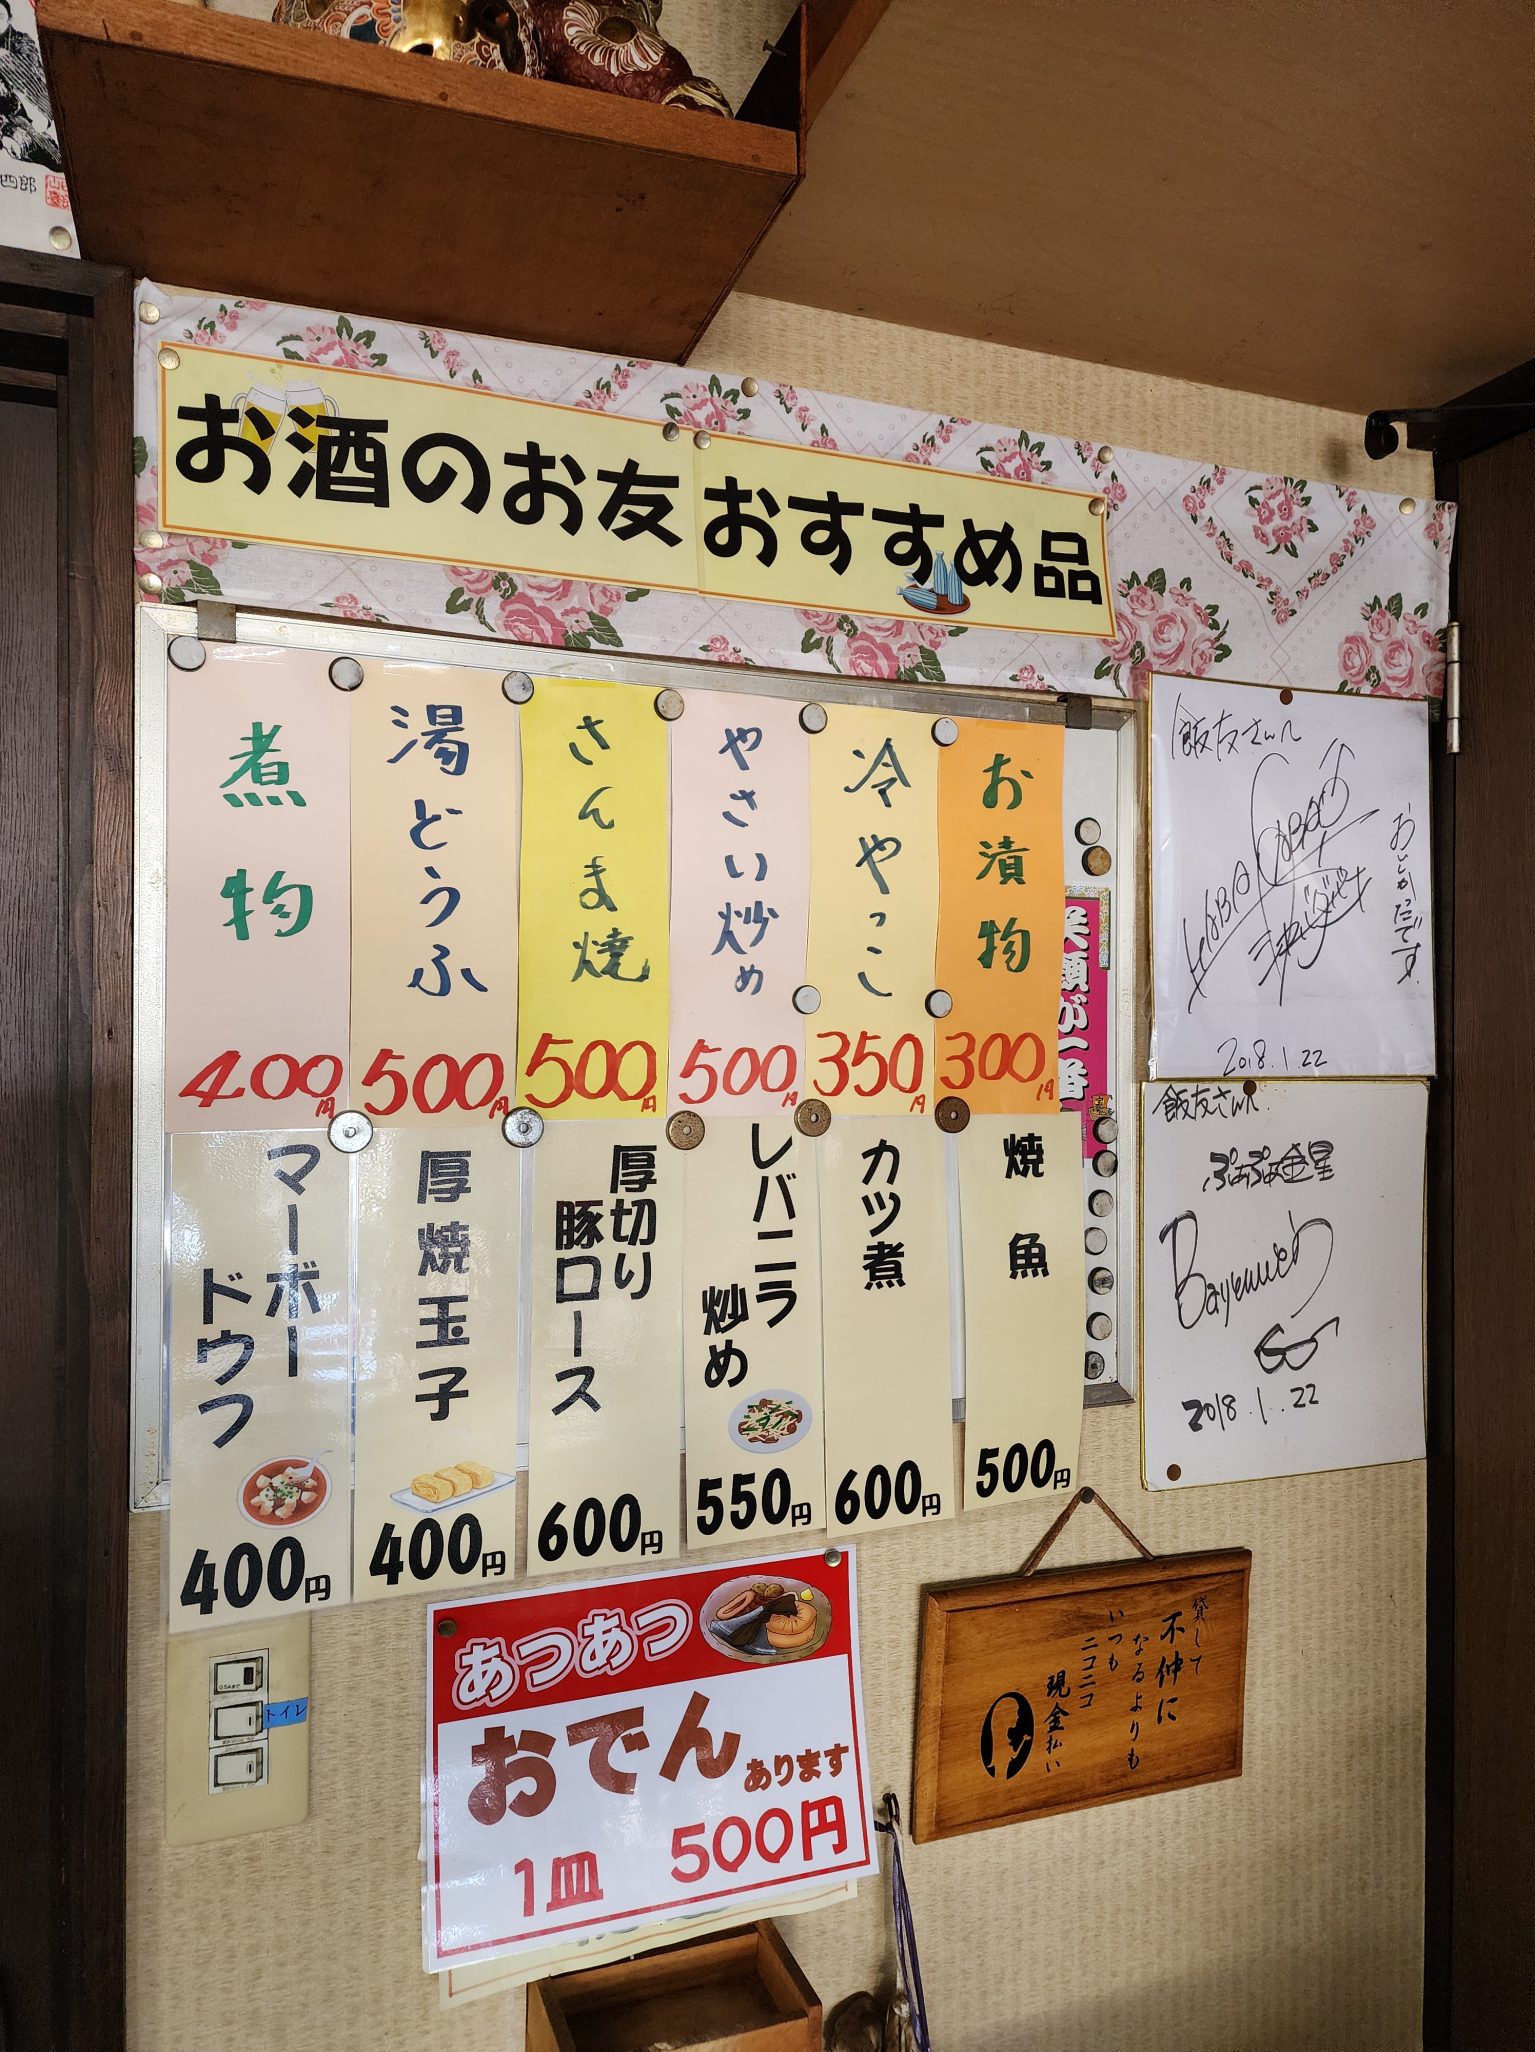 四郎
お酒のお友 おすすめ品
お漬物
300円
冷やっこ
350円
やさい炒め
500円
さんま焼
500円
湯どうふ
500円
煮物
400円
焼魚
500円
カツ煮
600円
レバニラ
炒め
550円
厚切り
豚ロース
600円
厚焼玉子
400円
マーボー
ドウフ
400円
笑顔が一番
飯友さんへ
おいしかったです
2018.1.22
飯友さんへ
ぷあぷあ金星
2018.1.22
あつあつ
おでん
あります
1皿 500円
貸して
不仲に
なるよりも
いつも
ニコニコ
現金払い
トイレ